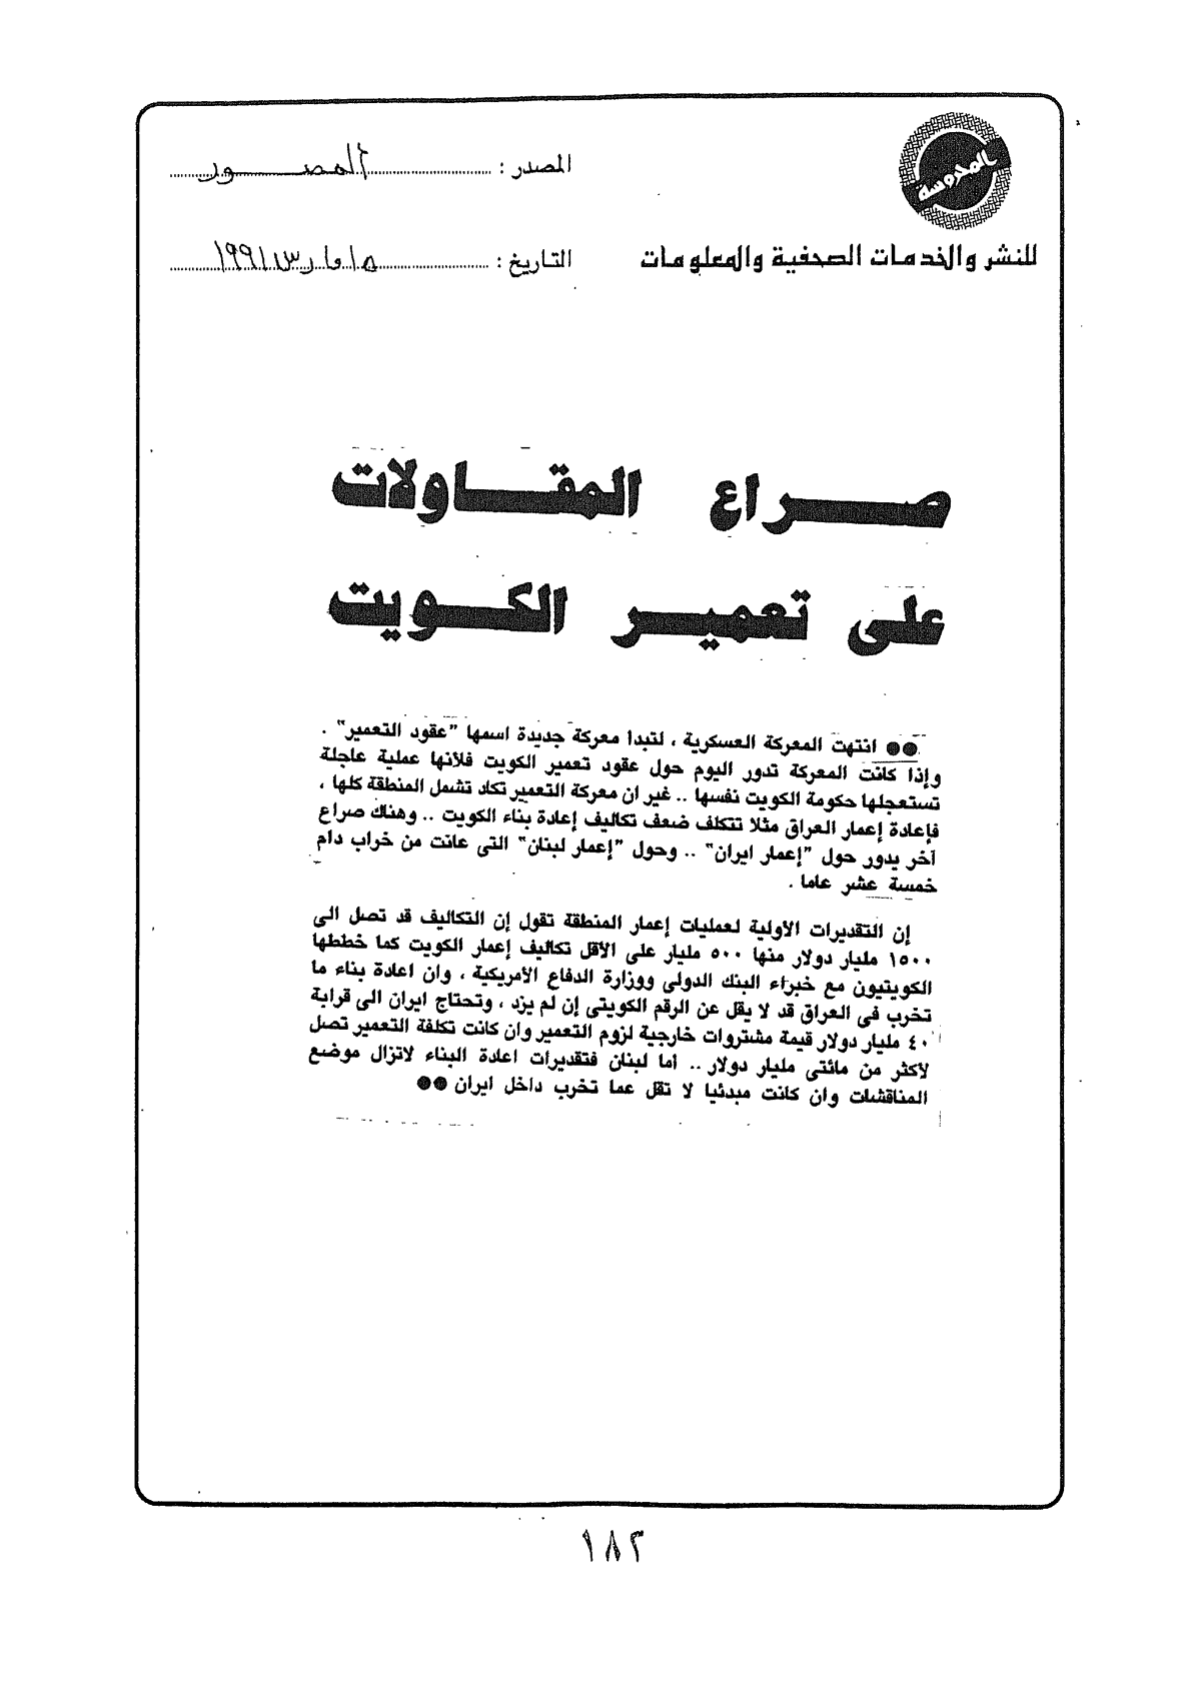 المحروسة
للنشر والخدمات الصحفية والمعلومات
المصدر : المصور
التاريخ : ١٥ مارس ١٩٩١
صراع المقاولات
على تعمير الكويت
●● انتهت المعركة العسكرية ، لتبدا معركة جديدة اسمها "عقود التعمير" .
وإذا كانت المعركة تدور اليوم حول عقود تعمير الكويت فلأنها عملية عاجلة
تستعجلها حكومة الكويت نفسها .. غير ان معركة التعمير تكاد تشمل المنطقة كلها ،
فإعادة إعمار العراق مثلا تتكلف ضعف تكاليف إعادة بناء الكويت .. وهناك صراع
آخر يدور حول "إعمار ايران" .. وحول "إعمار لبنان" التى عانت من خراب دام
خمسة عشر عاما .
إن التقديرات الأولية لعمليات إعمار المنطقة تقول إن التكاليف قد تصل الى
١٥٠٠ مليار دولار منها ٥٠٠ مليار على الأقل تكاليف إعمار الكويت كما خططها
الكويتيون مع خبراء البنك الدولى ووزارة الدفاع الأمريكية ، وان اعادة بناء ما
تخرب فى العراق قد لا يقل عن الرقم الكويتى إن لم يزد ، وتحتاج ايران الى قرابة
٤٠ مليار دولار قيمة مشتروات خارجية لزوم التعمير وان كانت تكلفة التعمير تصل
لأكثر من مائتى مليار دولار .. أما لبنان فتقديرات اعادة البناء لاتزال موضع
المناقشات وان كانت مبدئيا لا تقل عما تخرب داخل ايران ●●
١٨٢